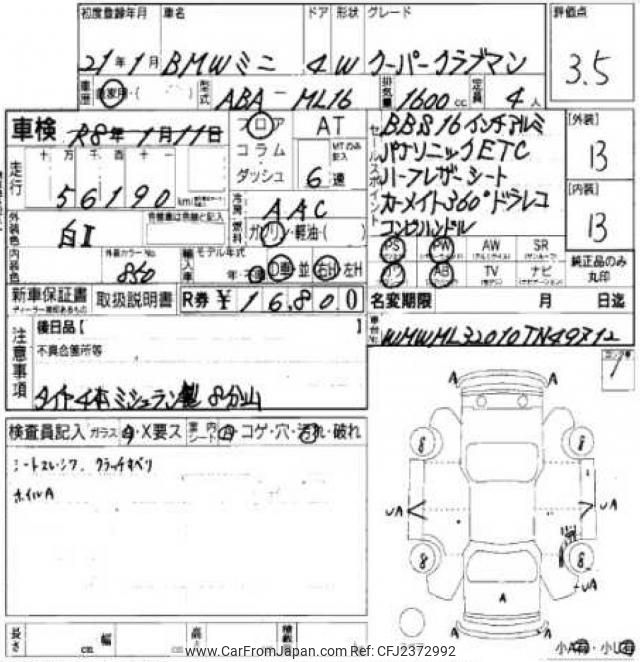 初度登録年月 車名 ドア 形状 グレード 評価点
21年1月 BMWミニ 4 W クーパークラブマン 3.5
車歴 自家用・( ) 型式 ABA-ML16 排気量 1600cc 定員 4人
車検 R8年1月11日 フロア AT
コラム MTのみ記入
ダッシュ 6速
セールスポイント
BBS16インチアルミ
パナソニックETC
ハーフレザーシート
カーメイト360°ドラレコ
コンビハンドル
[外装] B
[内装] B
走行 十万千百十一
56190km
冷房 AAC
燃料 ガソリン・軽油・( )
外装色 白II 色替車は元色と記入
内装色 外装カラーNo. 850
輸入車 モデル年式 年・不明 D車 並 右H 左H
PS PW AW SR
AB TV ナビ
純正品のみ丸印
新車保証書 取扱説明書 R券 ¥16,800
ディーラー捺印あるもの
名変期限 月 日迄
車台No. WMWML32010TN49712
注意事項
後日品【 】
不具合箇所等
タイヤ4本ミシュラン製 8分山
検査員記入 ガラス X要ス 車内シート コゲ・穴・汚れ・破れ
シートスレ・シワ、クラッチすべり
ホイルA
A A
8 8
UA UA
8 8
UA
A
A A
長さ cm 幅 cm 高さ 積載
www.CarFromJapan.com Ref: CFJ2372992